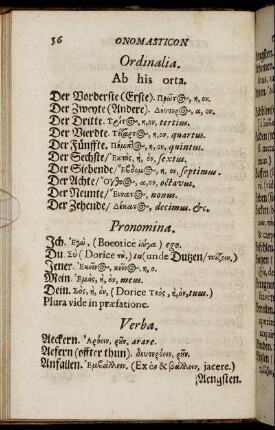 56 ONOMASTICON
Ordinalia.
Ab his orta.
Der Vorderste (Erste). Πρῶτος, η, ον.
Der Zweyte (Andere). Δευτερος, α, ον.
Der Dritte. Τρίτος, η, ον, tertius.
Der Vierdte. Τέταρτος, η, ον, quartus.
Der Fünffte. Πέμπτος, η, ον, quintus.
Der Sechste/ Ἕκτος, η, ον, sextus.
Der Siebende/ Ἕβδομος, η, ον, septimus.
Der Achte/ Ὄγδοος, α, ον, octavus.
Der Neunte/ Ἔννατος, nonus.
Der Zehende/ Δέκατος, decimus. &c.
Pronomina.
Ich. Ἐγὼ, (Boeoticè ) ego.
Du. Σὺ (Doricè τὺ,) tu (unde Dutzen/
Jener. Ἐκεῖνος, κεῖνος, η, ο.
Mein. Ἐμὸς, ὴ, ὸν, meus.
Dein. Σὸς, ὴ, ὸν, (Doricè Τεὸς, ὴ, ὸν, tuus.)
Plura vide in præfatione.
Verba.
Aeckern. Ἀρόειν, ρῶν, arare.
Aefern (offter thun). δευτερόειν, ρῶν.
Anfallen. Ἐμβάλλειν, (Ex ἐν & βάλλειν, jacere.)
Aengsten.